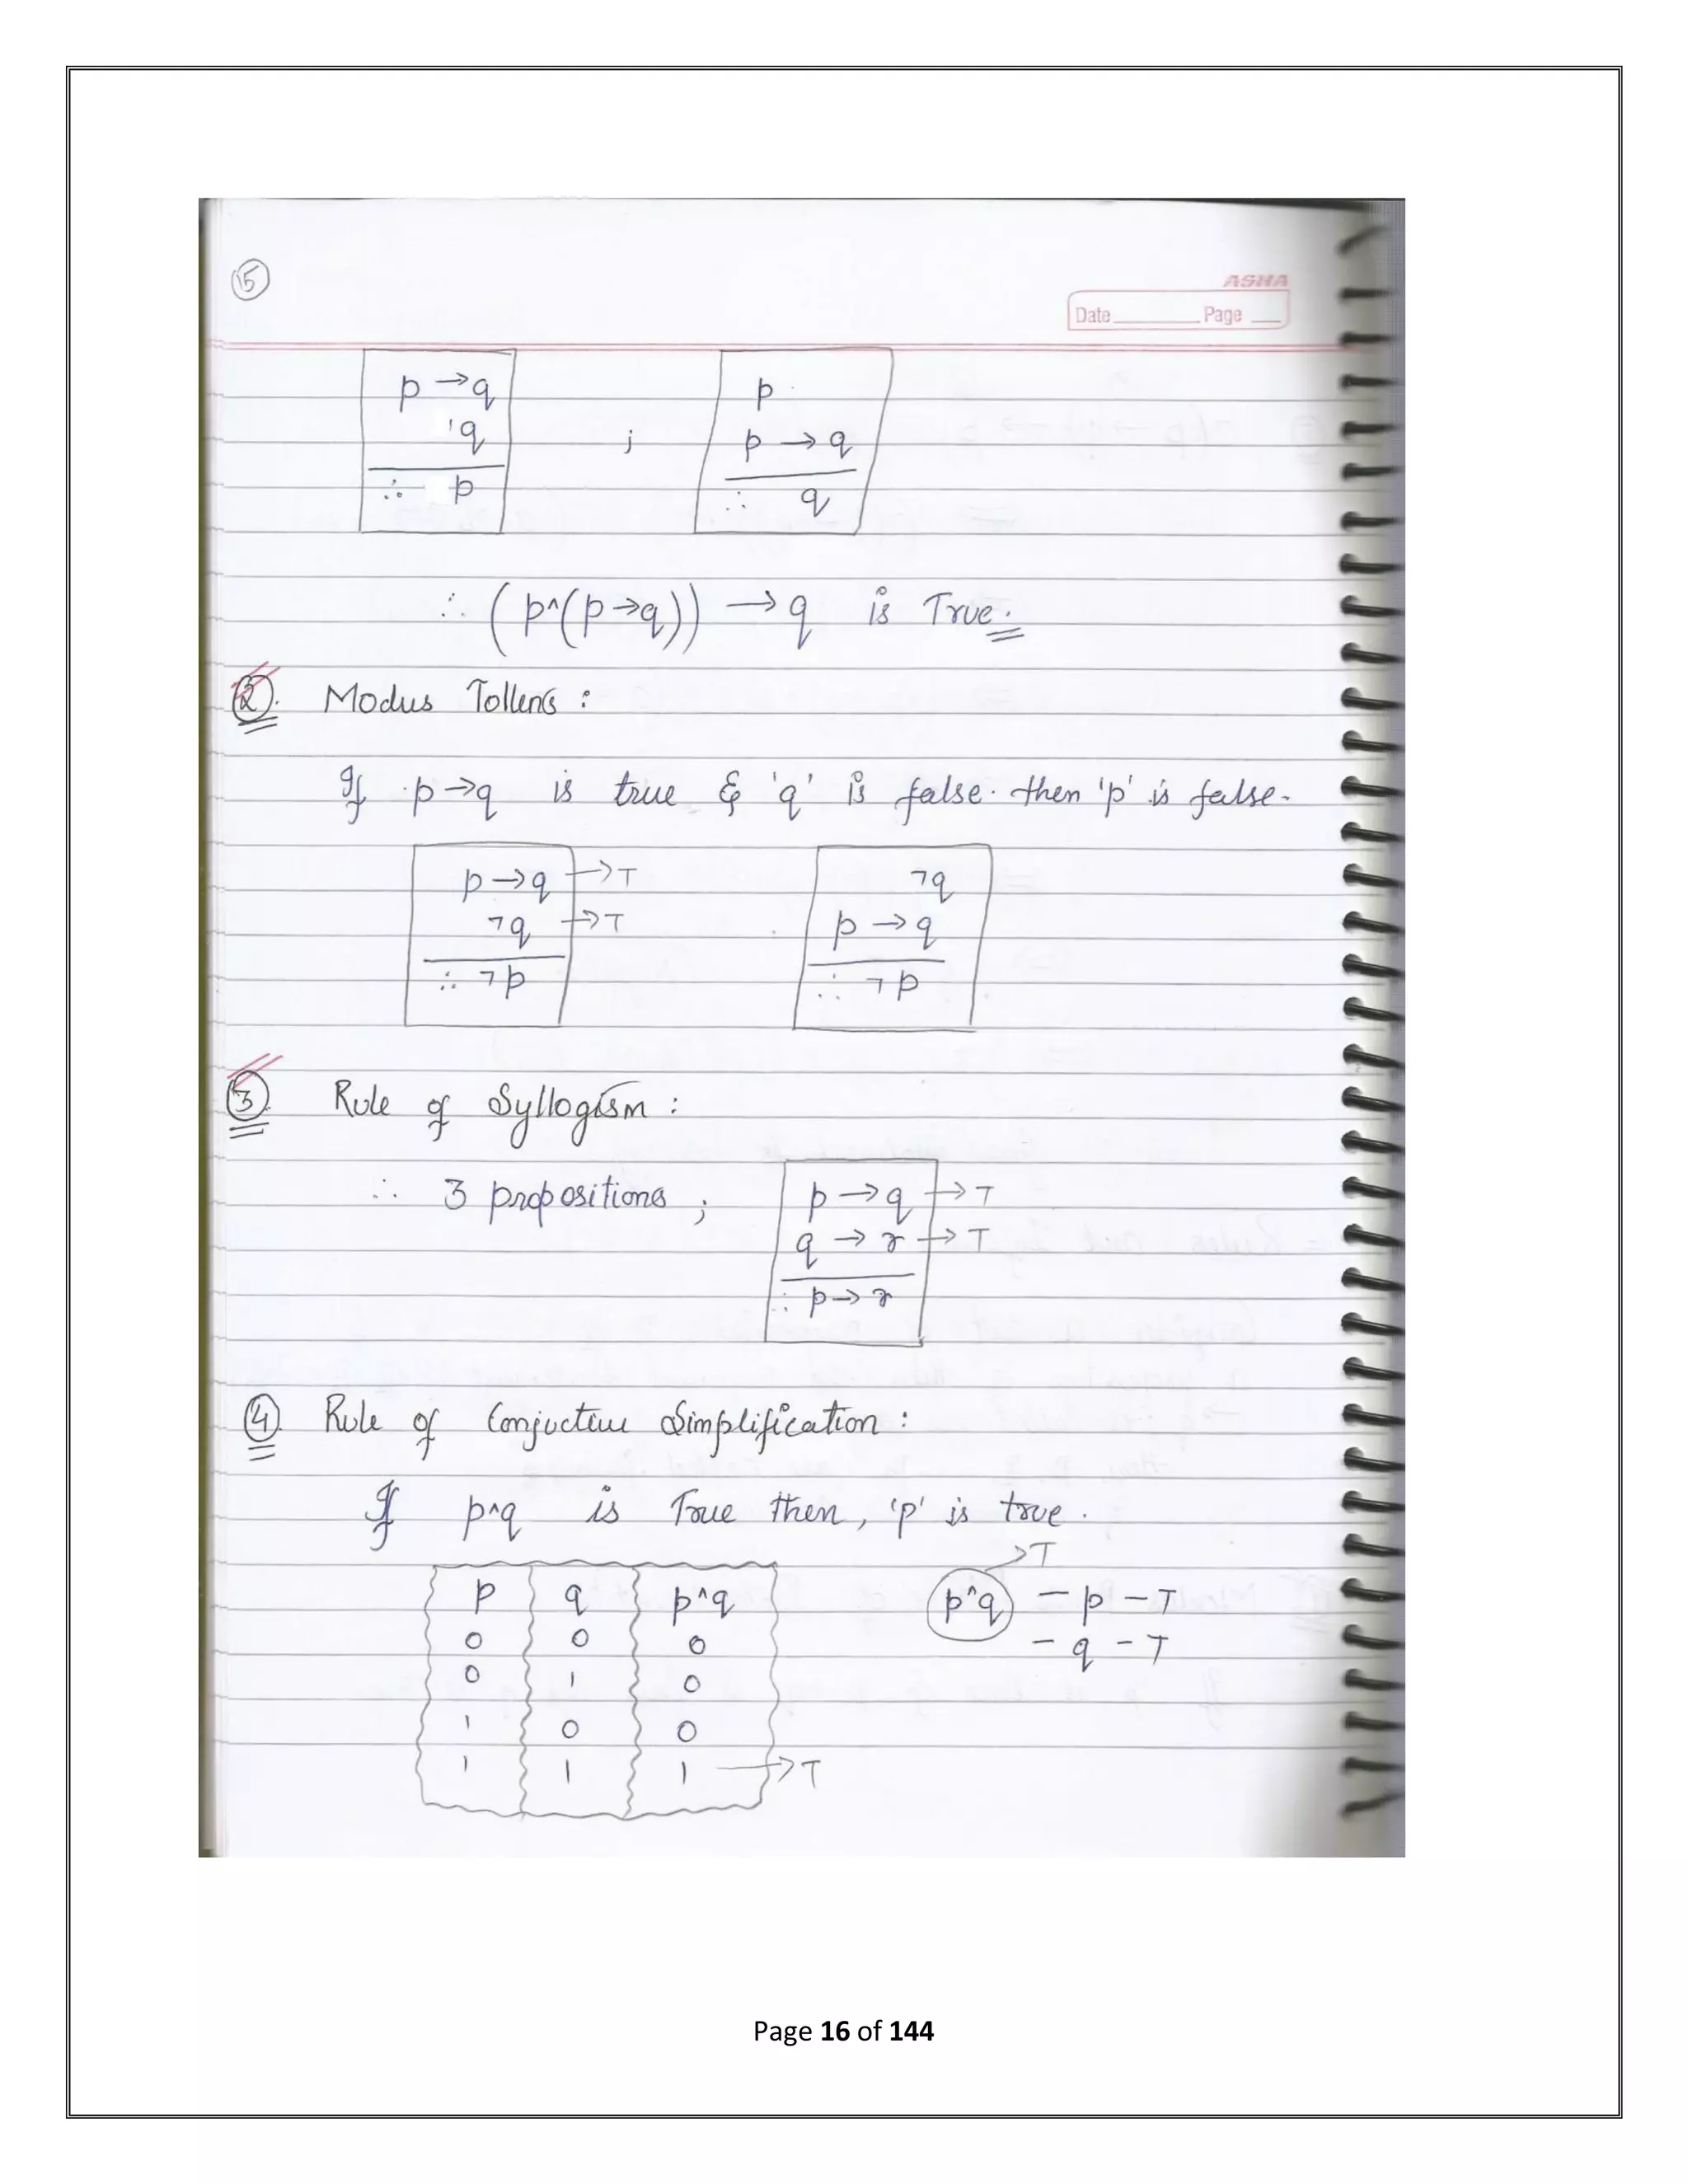 15
ASHA
Date Page
p → q
'q
∴ p
;
p
p → q
∴ q
∴ (p^(p→q)) → q is True.
2. Modus Tollens :
If p→q is true & 'q' is false. then 'p' is false.
p → q → T
¬q → T
∴ ¬p
¬q
p → q
∴ ¬p
3. Rule of Syllogism :
∴ 3 propositions ;
p → q → T
q → r → T
∴ p → r
4. Rule of Conjuctive Simplification :
If p^q is True then, 'p' is true.
p q p^q
0 0 0
0 1 0
1 0 0
1 1 1 → T
→ T
p^q – p – T
– q – T
Page 16 of 144